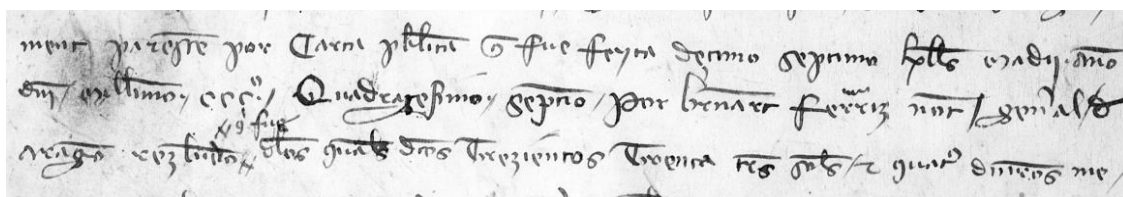 ment paresçe por Carta publica q fue feyta decimo septimo klls madij. año
dni millimo. ccc.º / Quadragesimo. septimo / Por bernart ferriz not / genal d
aragon q fue
dlos quals dtos Trezientos Trenta tres sols / z quatº dineros me/